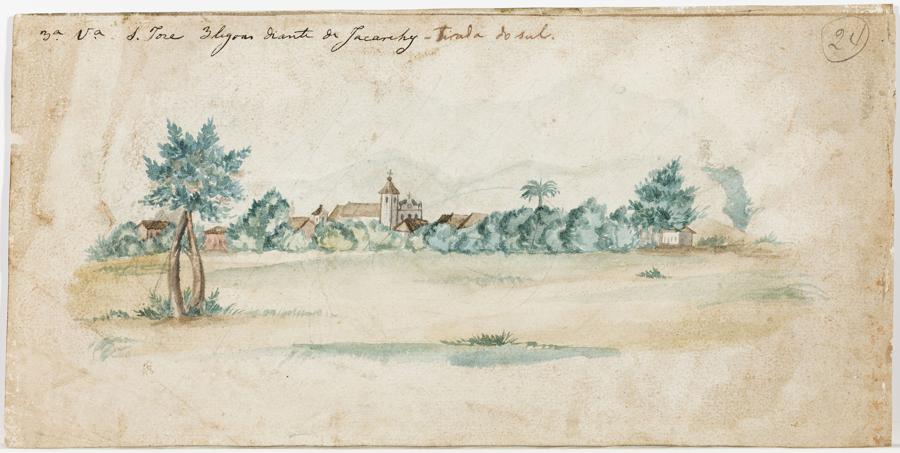 3ª Vª. S. Joze 3 legoas diante de Jacarehy - tirada do sul.
24